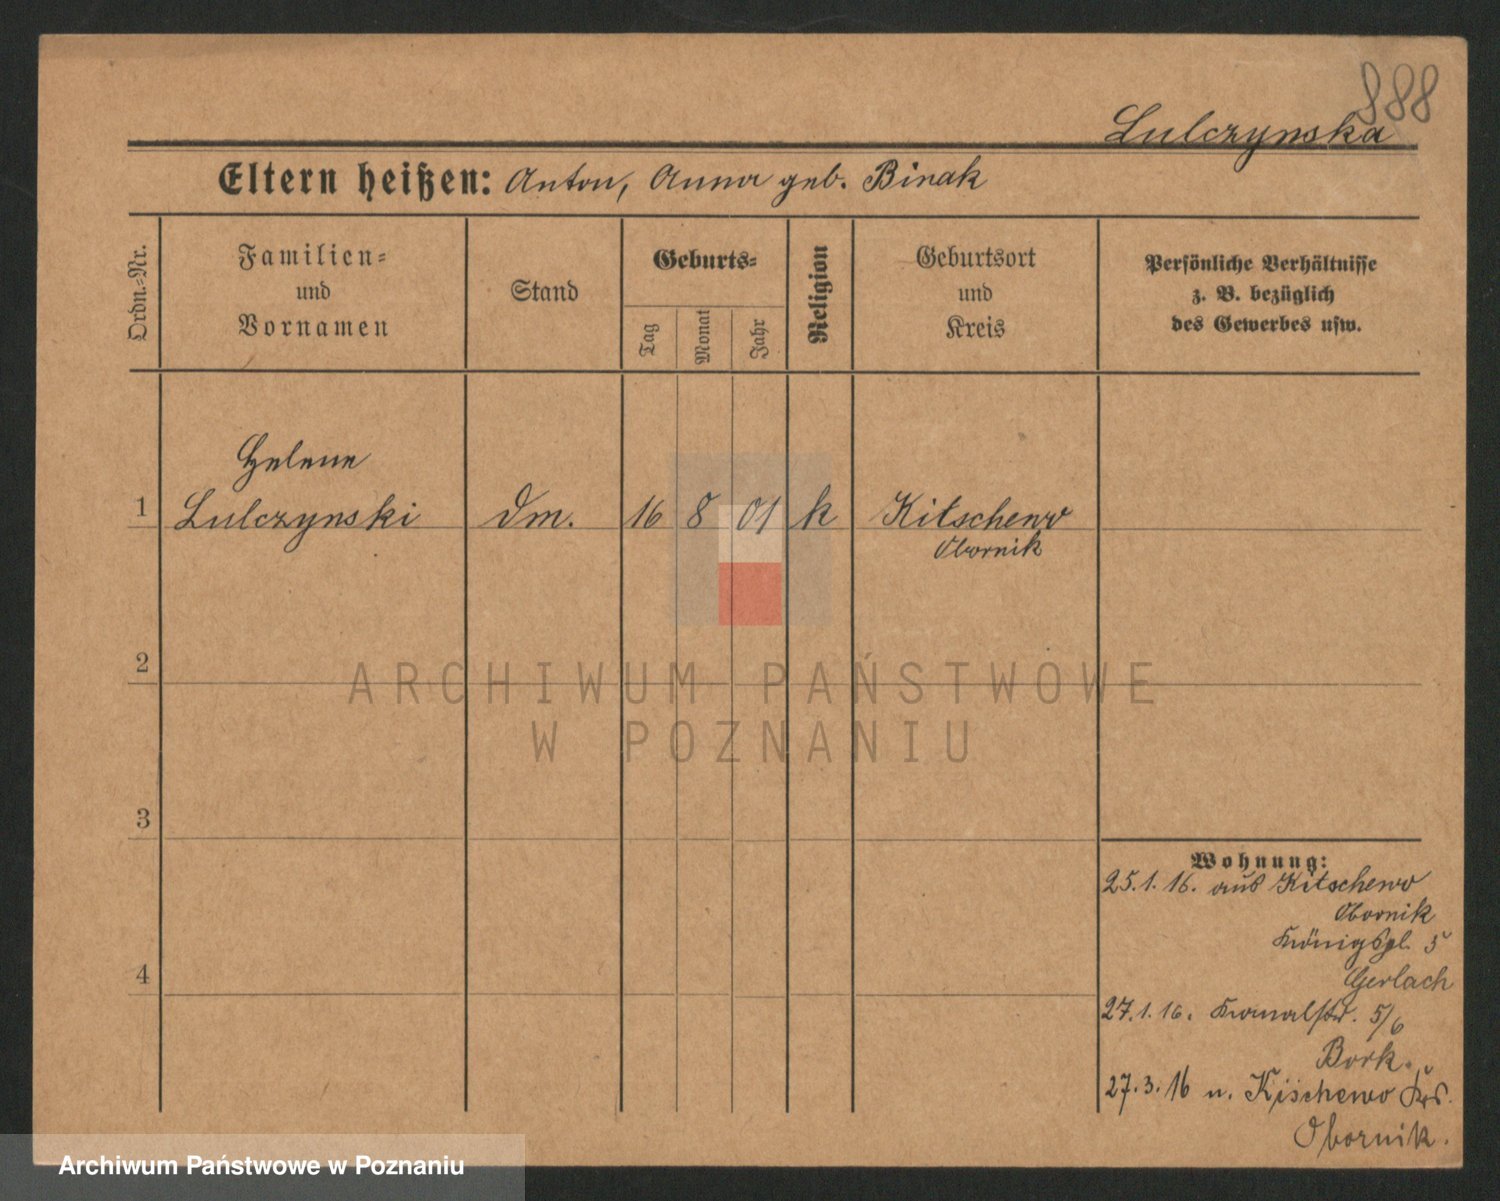 888
Lulczynska
Eltern heißen: Anton, Anna geb. Binak
Ordn.-Nr.
Familien-
und
Vornamen
Stand
Geburts-
Tag
Monat
Jahr
Religion
Geburtsort
und
Kreis
Persönliche Verhältnisse
z. B. bezüglich
des Gewerbes usw.
Helene
1 Lulczynski Dm. 16 8 01 k Kitschewo
Obornik
2
3
4
Wohnung:
25.1.16. aus Kitschewo
Obornik
Königspl. 5
Gerlach
27.1.16. Kanalstr. 5/6
Bork.
27.3.16 n. Kischewo Krs.
Obornik.
ARCHIWUM PAŃSTWOWE
W POZNANIU
Archiwum Państwowe w Poznaniu